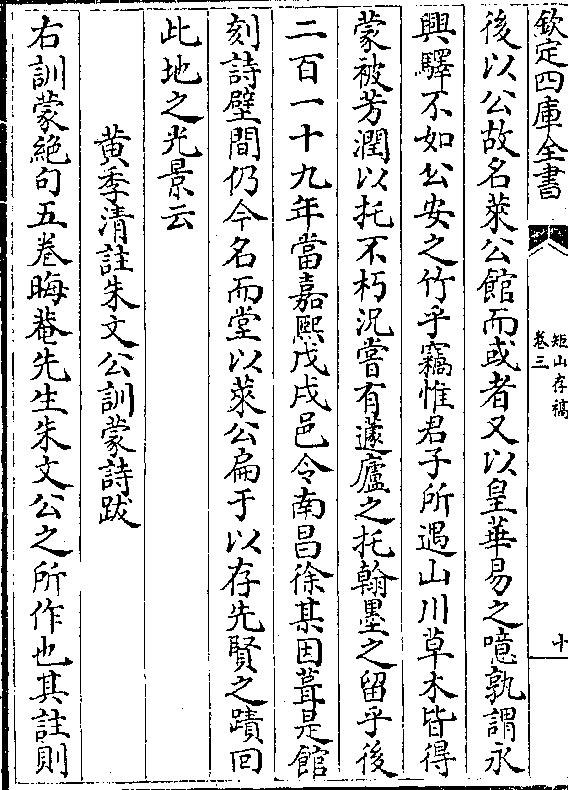 欽定四庫全書
矩山存稿
卷三
十
後以公故名萊公館而或者又以皇華易之噫孰謂永
興驛不如公安之竹乎竊惟君子所遇山川草木皆得
蒙被芳潤以托不朽況嘗有蘧廬之托翰墨之留乎後
二百一十九年當嘉熙戊戌邑令南昌徐某因葺是館
刻詩壁間仍今名而堂以萊公扁于以存先賢之蹟回
此地之光景云
黄季清註朱文公訓蒙詩跋
右訓蒙絶句五卷晦菴先生朱文公之所作也其註則